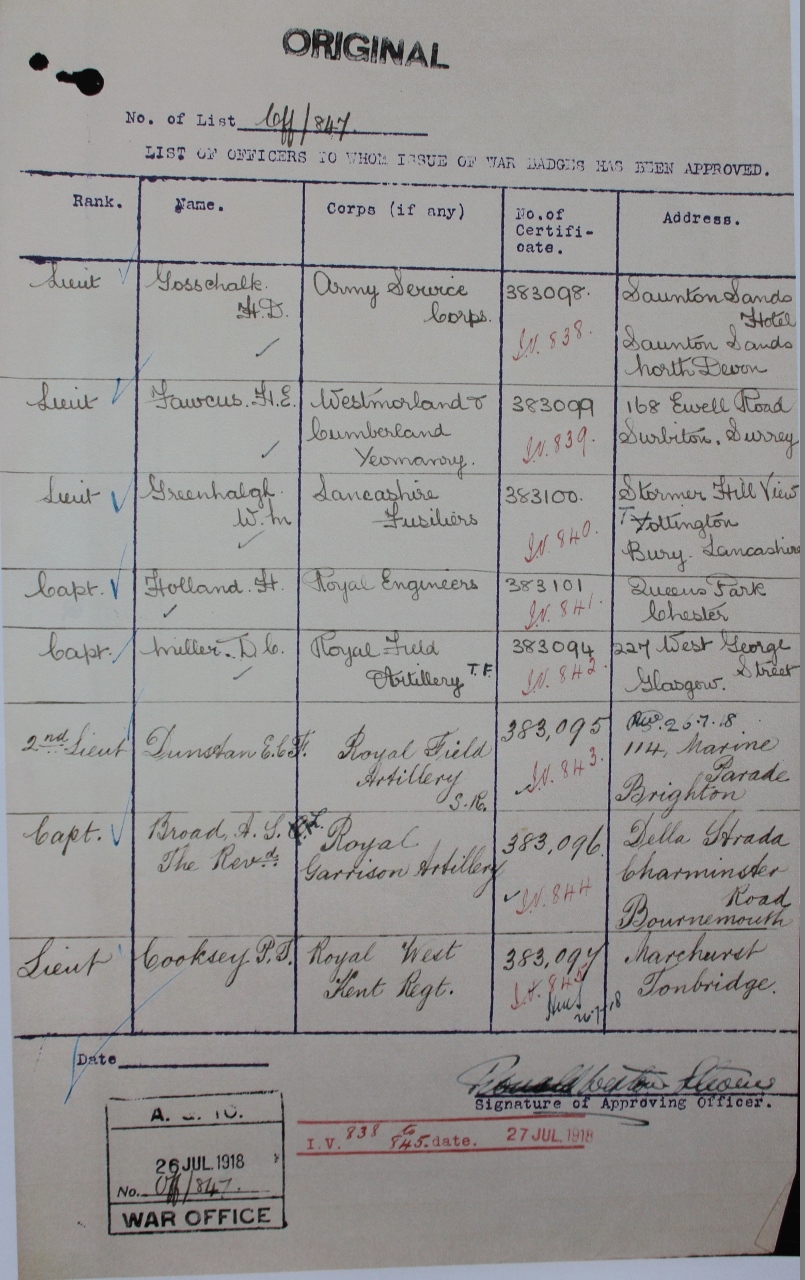 ORIGINAL
No. of List Off/847.
LIST OF OFFICERS TO WHOM ISSUE OF WAR BADGES HAS BEEN APPROVED.
Rank. Name. Corps (if any) No. of Certifi-cate. Address.
Lieut Gosschalk. Army Service 383098. Saunton Sands
H.D. Corps. I.V. 838. Hotel
Saunton Sands
North Devon
Lieut Fawcus. H.E. Westmorland & 383099 168 Ewell Road
Cumberland I.V. 839. Surbiton, Surrey
Yeomanry.
Lieut Greenhalgh. Lancashire 383100. Stormer Hill View
W. M Fusiliers I.V. 840. Tottington
Bury. Lancashire
Capt. Holland. H. Royal Engineers 383101 Queens Park
I.V. 841. Chester
Capt. Miller. D C. Royal Field 383094 227 West George
Artillery T.F. I.V. 842. Street
Glasgow.
26.7.18
2nd Lieut Dunstan E.C.F. Royal Field 383,095 114, Marine
Artillery I.V. 843. Parade
S.R. Brighton
Capt. Broad, A. G. Royal 383,096. Della Strada
The Revd. Garrison Artillery I.V. 844 Charminster
Road
Bournemouth
Lieut Cooksey. P.T. Royal West 383,097 Marchurst
Kent Regt. I.V. 845 Tonbridge.
26-7-18
Date
Signature of Approving Officer.
I.V. 838 to 845. date. 27 JUL. 1918
26 JUL. 1918
No. Off/847.
WAR OFFICE